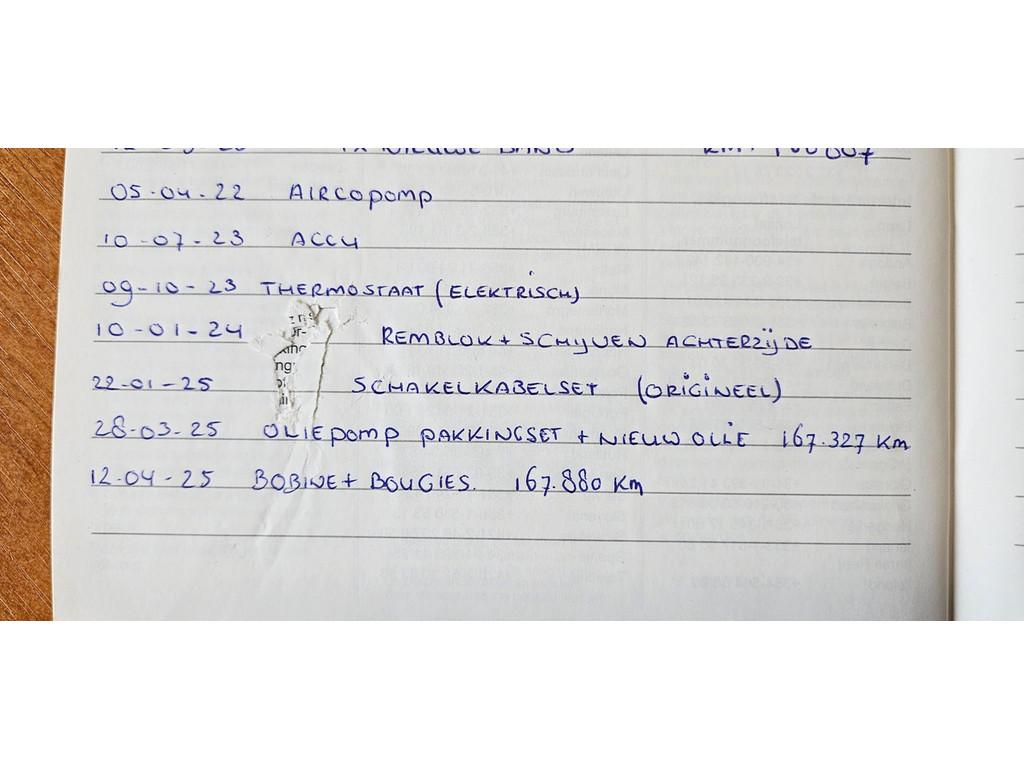 NIEUWE BAND KM:
05-04-22 AIRCOPOMP
10-07-23 ACCU
09-10-23 THERMOSTAAT (ELEKTRISCH)
10-01-24 REMBLOK + SCHIJVEN ACHTERZIJDE
22-01-25 SCHAKELKABELSET (ORIGINEEL)
28-03-25 OLIEPOMP PAKKINGSET + NIEUW OLIE 167.327 KM
12-04-25 BOBINE + BOUGIES. 167.880 KM